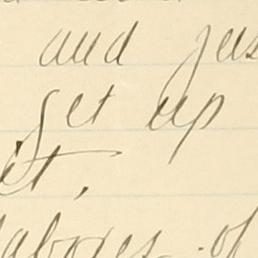 and jus
get up
et,
labores of